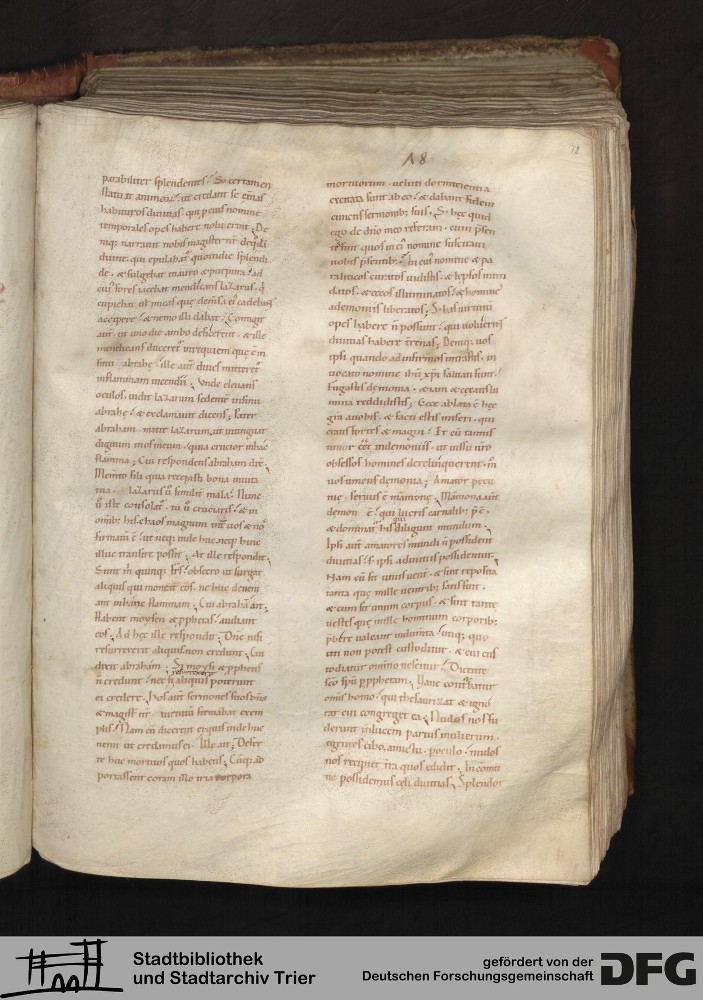 18
72
parabiliter splendentes. Sed certamen
statuit animoru. ut credant se eternas
habituros divitias. qui pro eius nomine
temporales opes habere noluerint. De
niq; narravit nobis magister nr de q̄dā
divite. qui epulabat quotidie splendi
de. & fulgebat in auro & purpura. ad
cui fores iacebat mendicans lazarus. q̄
cupiebat ut micas quę de mensa ei cadebant
accipere. & nemo illi dabat. Contigit
aut. ut uno die ambo deficerent. & ille
mendicans duceret in requiem quę ē in
sinu abrahę. ille aut dives mitteret
in flammam incendii. Unde elevans
oculos. vidit lazarum sedentē in sinu
abrahę. & exclamavit dicens; Pater
abraham. mitte lazarum, ut intinguat
digitum in os meum. quia crucior in hac
flamma; Cui respondens abraham dix.
Memto fili quia recepisti bona in vita
tua. lazarus ū similit mala. Nunc
ū iste consolat. tu ū cruciaris. & in
omib; his chaos magnum int vos & nos
firmatū ē. ut neq; inde huc. neq; hinc
illuc transire possit. At ille respondit.
Sunt m quinq; frs. obsecro ut surgat
aliquis qui moneat eos. ne huc deveni
ant in hanc flammam; Cui abrahā ait;
Habent moysen & pphetas. audiant
eos. Ad hęc ille respondit. Dne nisi
resurrexerit aliquis non credunt. Cui
dixit abraham. Si moysi & pphetis
n̄ credunt. nec si aliquis
resurrexerit
poterunt
ei credere. Hos aut sermones suos dns
& magist nr. virtutū firmabat exem
plis. Nam cū dicerent ei quis inde huc
venit ut credamus ei. Ille ait; Defer
te huc mortuos quos habetis. Cūq; ad
portassent coram illo tria corpora
mortuorum. veluti dormientia
excitata sunt ab eo. & dabant fidem
cunctis sermonib; suis. Sed hęc quid
ego de dno meo referam. cum psen
tes sint quos in ei nomine suscitavi
vobis psentib;. In cui nomine & pa
raliticos curatos vidistis. & leprosos mun
datos. & cecos illuminatos. & homines
a demoniis liberatos; Sed has virtutū
opes habere n̄ possunt. qui voluerint
divitias habere trenas; Deniq; vos
ipsi quando ad infirmos intrastis. in
vocato nomine ihu xpi salvati sunt.
Fugastis demonia. & iam & cecatis lu
mina reddidistis; Ecce ablata ē hęc
gra a vobis. & facti estis miseri. qui
eratis fortes & magni. Et cū tantus
timor eet in demoniis. ut iussu vro
obsessos homines derelinquerent. m
vos timetis demonia; Amator pecu
nię. servus ē mamonę. Mamona aut
demon ē. qui lucris carnalib; pē.
& dominat his
qui
diligunt mundum.
Ipsi aut amatores mundi n̄ possident
divitias. sed ipsi a divitiis possidentur.
Nam cū sit unus vent. & sint reposita
tanta quę mille ventrib; satis sint.
& cum sit unum corpus. & sint tante
vestes quę mille hominum corporib;
pbere valeant indumta. utiq; quo
uti non potest custoditur. & cui cus
todiatur omnino nescitur. Dicente
sco spu p pphetam. Vane conturbatur
omis homo. qui thesaurizat & igno
rat cui congreget ea. Nudos nos fu
derunt in lucem partus mulierum.
egentes cibo, amictu, poculo. nudos
nos recipiet tra quos edidit. In cōmu
ne possidemus cęli divitias. Splendor
Stadtbibliothek
und Stadtarchiv Trier
gefördert von der
Deutschen Forschungsgemeinschaft
DFG